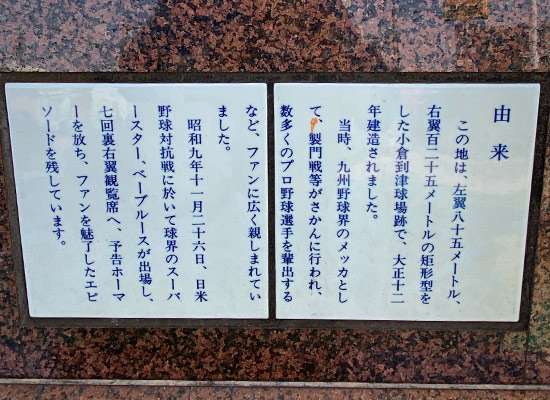 由来
この地は、左翼八十五メートル、
右翼百二十五メートルの矩形型を
した小倉到津球場跡で、大正十二
年建造されました。
当時、九州野球界のメッカとし
て、製門戦等がさかんに行われ、
数多くのプロ野球選手を輩出する
など、ファンに広く親しまれてい
ました。
昭和九年十一月二十六日、日米
野球対抗戦に於いて球界のスーパ
ースター、ベーブルースが出場し、
七回裏右翼観覧席へ、予告ホーマ
ーを放ち、ファンを魅了したエピ
ソードを残しています。